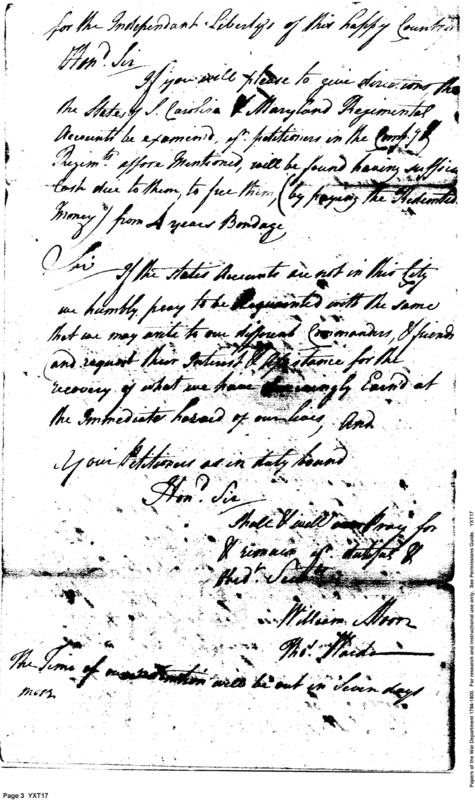 for the Independant Libertys of this happy Countrey
Hond. Sir
If you will please to give directions that
the States of S. Carolina & Maryland Regimental
Accounts be examened, yr. petitioners in the Compy. &
Regimts. affore Mentioned, will be found having suffict
Cash due to them, to free them, (by paying the
Money) from 4 years Bondage
Sir If the States Accounts are not in this City
we humbly pray to be Acquainted with the same
that we may write to our different Commanders, & friends
and request their Interest & Assistance for the
recovery of what we have Earnd at
the Immediate hazard of our lives, And
Your Petitioners as in duty bound
Hond. Sir
Shall & will Pray for
& remain yr. dutifull &
Obedt. Servts
William Moor
Thos.
The Time of our will be out in Seven days
more
Page 3 YXT17
Papers of the War Department 1784-1800. For research and instructional use only. See Permissions Guide. YXT17